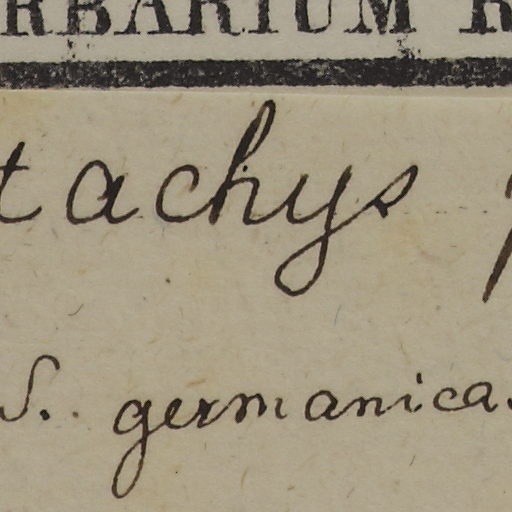 RBARIUM R
tachys
S. germanica.